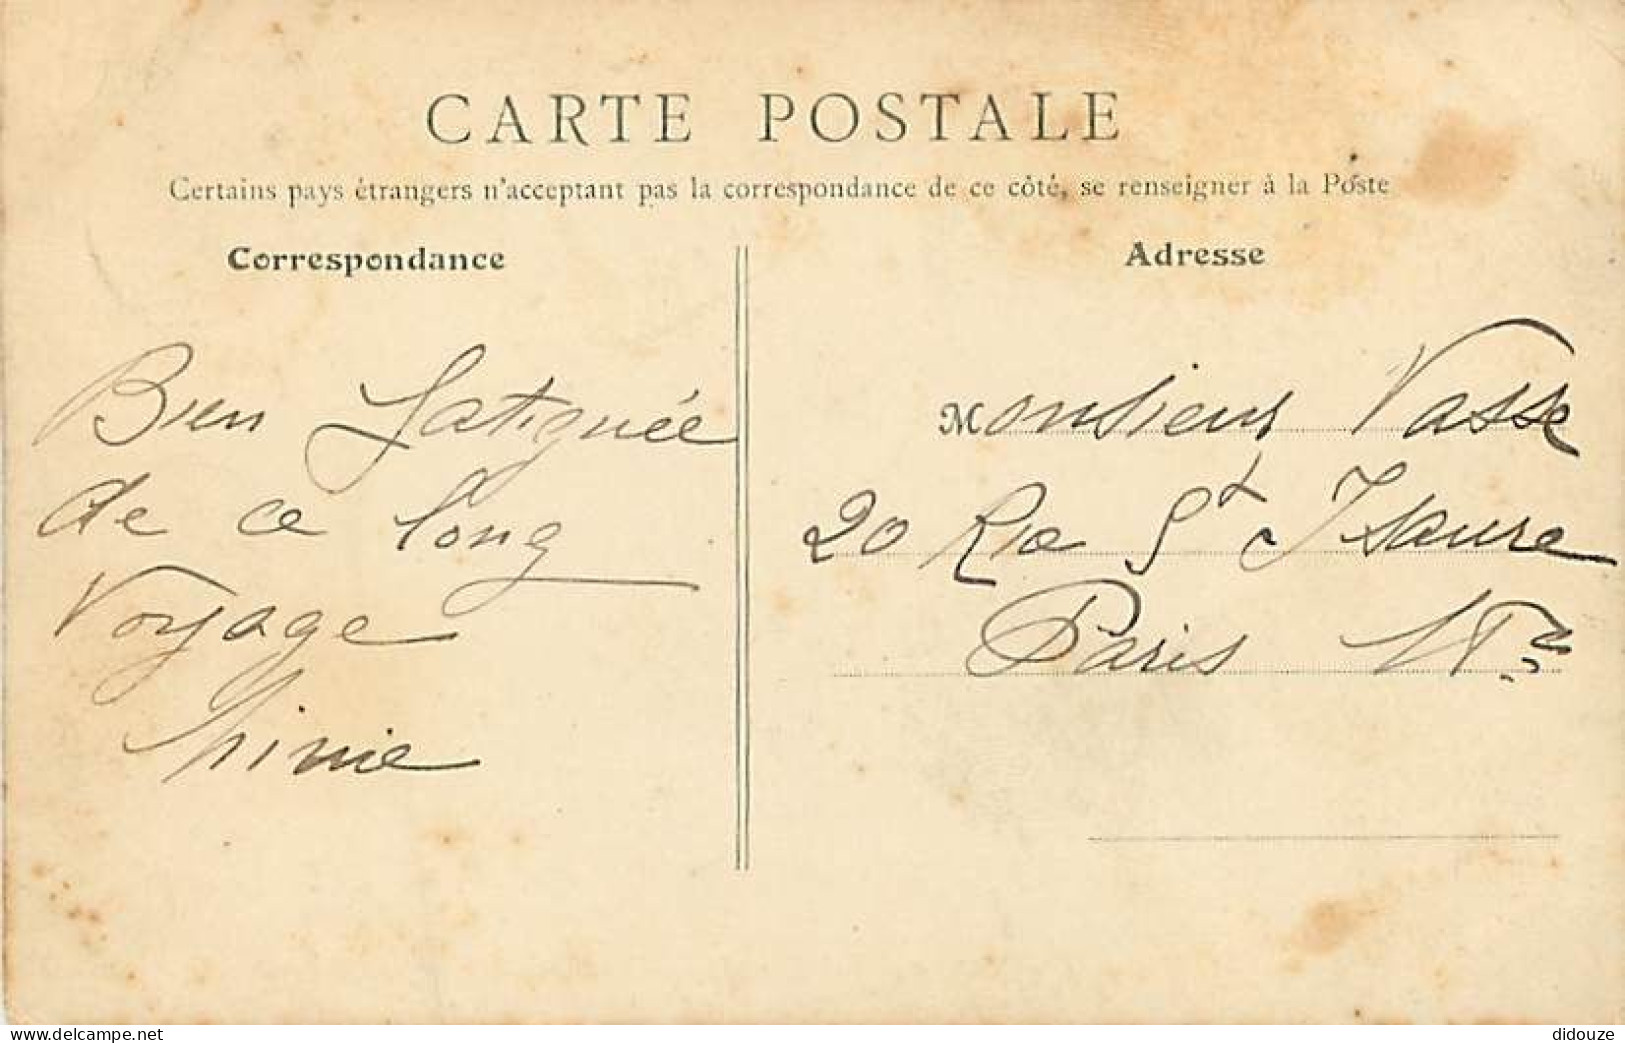 CARTE POSTALE
Certains pays étrangers n'acceptant pas la correspondance de ce côté, se renseigner à la Poste
Correspondance
Bien fatiguée
de ce long
Voyage
Adresse
Monsieur Vasse
20 Rue St Isaure
Paris
didouze